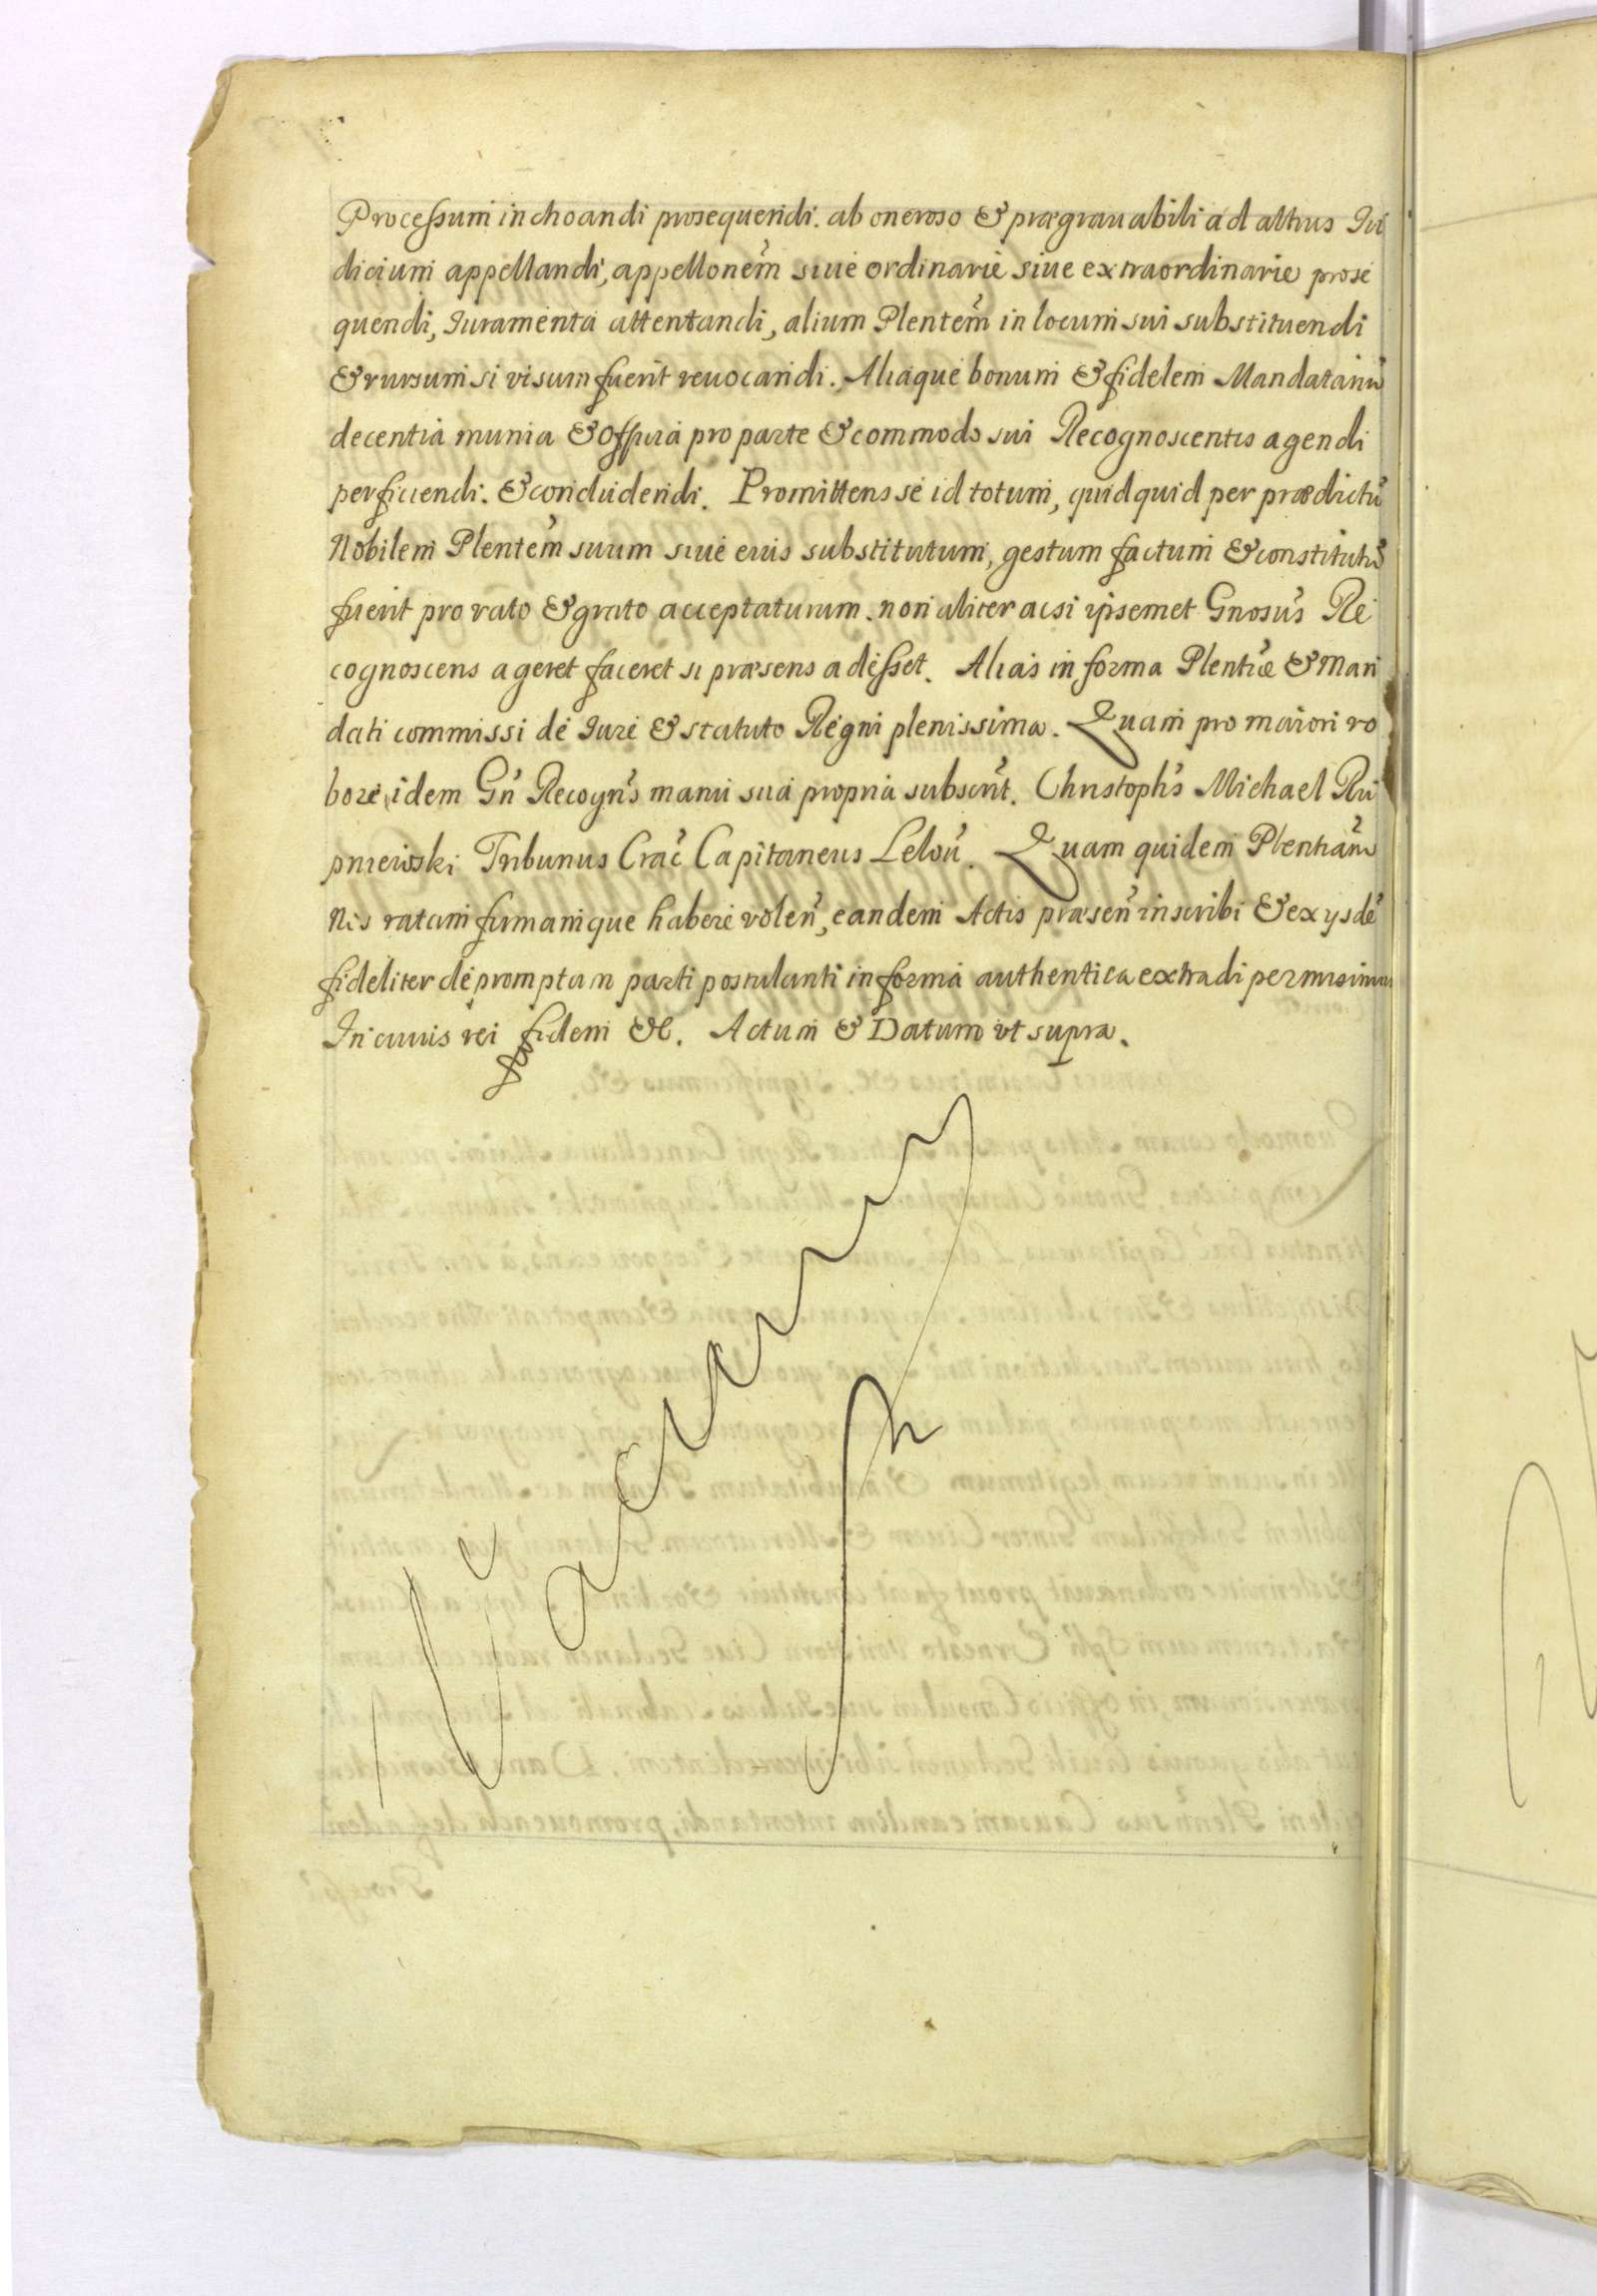 Processum inchoandi prosequendi. ab oneroso & prægrauabili ad altius Iu
dicium appellandi, appellonem̃ siue ordinarie siue extraordinarie prose
quendi, Iuramenta attentandi, alium Plentem̃ in locum sui substituendi
& rursum si visum fuerit reuocandi. Aliaque bonum & fidelem Mandatariũ
decentia munia & officia pro parte & commodo sui Recognoscentis agendi
perficiendi. & concludendi. Promittens se id totum, quidquid per prædictũ
Nobilem Plentem̃ suum siue eius substitutum, gestum factum & constitutũ
fuerit pro rato & grato acceptaturum. non aliter acsi ipsemet Gnosus̃ Re
cognoscens ageret faceret si præsens adesset. Alias in forma Plentiæ & Man
dati commissi de Iure & statuto Regni plenissima. Quam pro maiori ro
bore idem Gñ Recogñs manu sua propria subscrit̃. Christophs̃ Michael Ru
pniewski Tribunus Crac̃ Capitaneus Leloũ. Quam quidem Plentiam̃
Nis ratam firmamque habere voleñ, eandem Actis præseñ inscribi & ex ysdẽ
fideliter depromptam parti postulanti in forma authentica extradi permisimus
In cuius rei fidem &c. Actum & Datum vt supra.
Vacanny